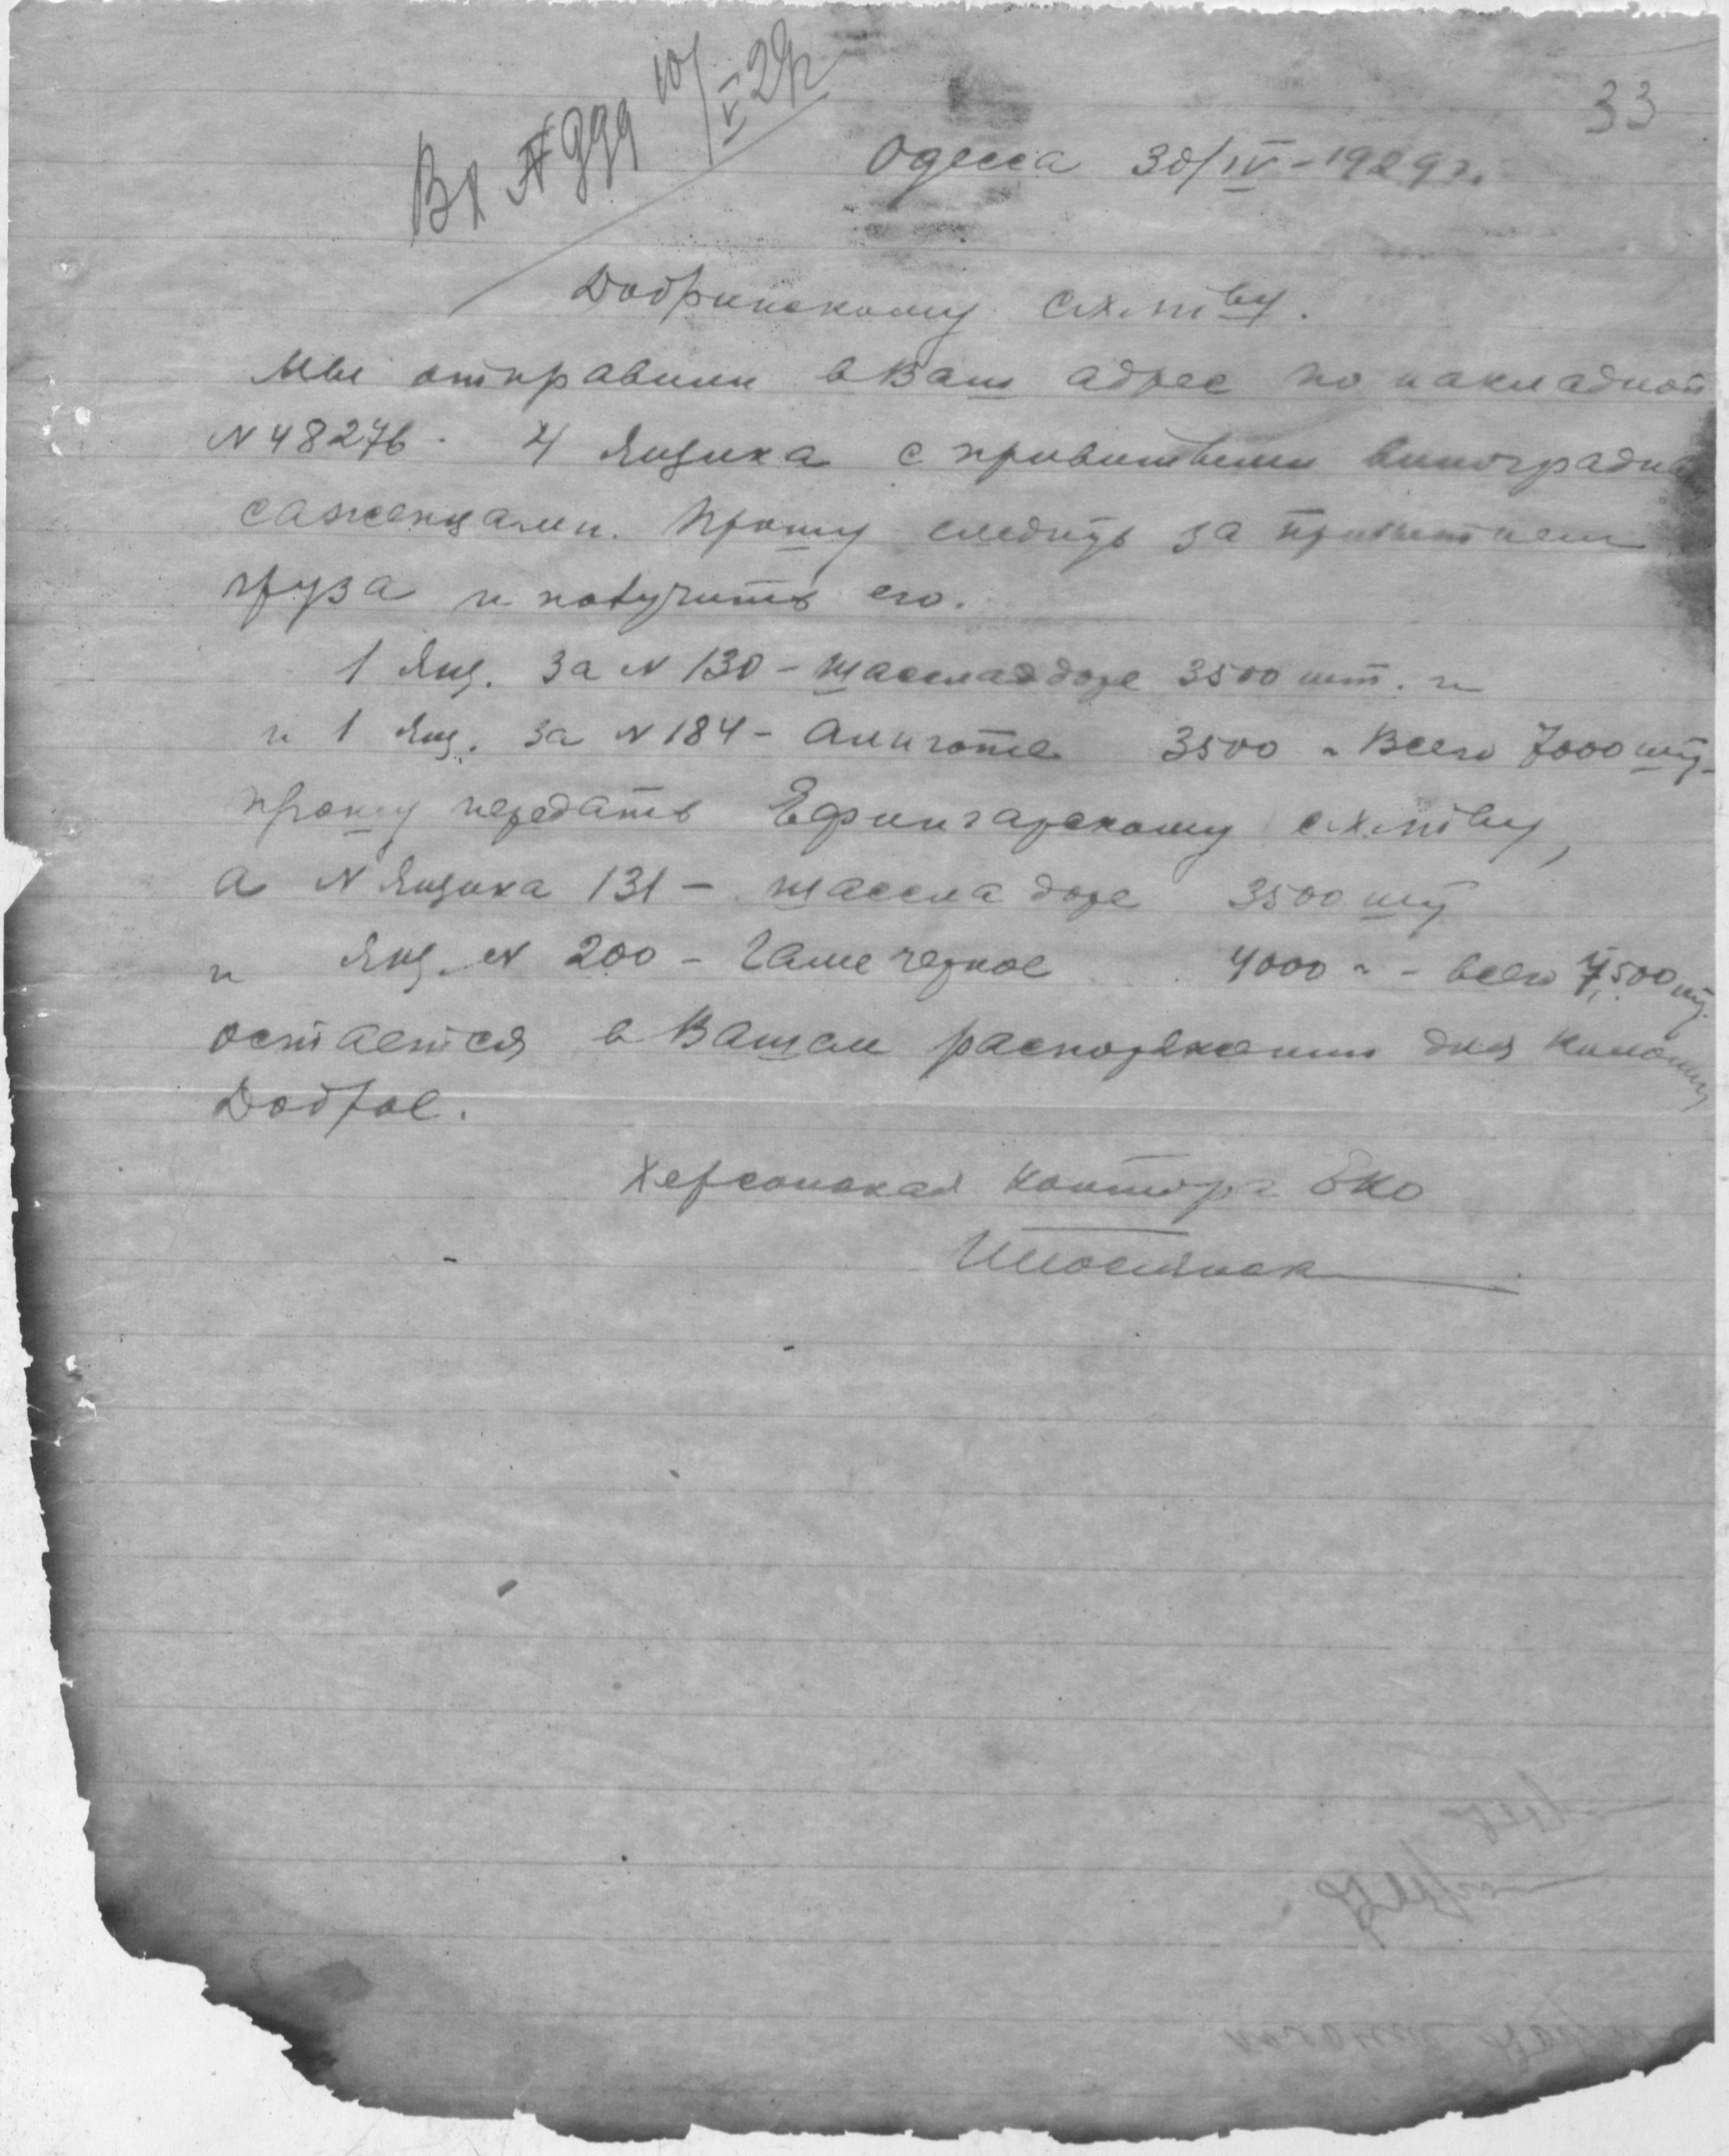 33
Вх № 999 10/V-29г
Одесса 30/IV-1929г.
Добринскому с.х.т-ву.
Мы отправили в Ваш адрес по накладной
N 48276. 4 Ящика с привитыми виноградн
саженцами. Прошу следить за прибытием
груза и получить его.
1 Ящ. за N 130 – Шасла доре 3500 шт. и
и 1 Ящ. за N 184 – Алиготе 3500 " Всего 7000 шт.
прошу передать Ефингарскому с.х.т-ву,
а N Ящика 131 – шассла доре 3500 шт
и Ящ. N 200 – Гаме черное 4000 " – всего 7500 шт.
остается в Вашем распоряжении для колонии
Доброе.
Херсонская контора ЕКО